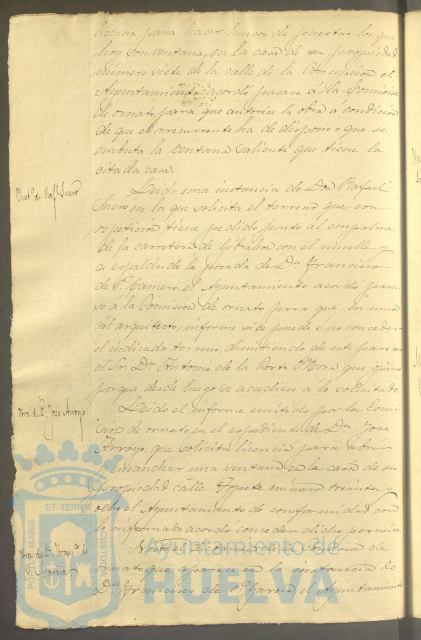 licencia para hacer huecos de puertas los que
hoy son ventana, en la casa de su propiedad
número siete de la calle de la Concepcion el
Ayuntamiento acordó pasase á la Comision
de ornato para que autorice la obra á condicion
de que el recurrente ha de disponer que se
embuta la ventana saliente que tiene la
citada casa.
Inst.ª de Raf.l Suero
Leida una instancia de Don Rafael
Suero en la que solicita el terreno que con
repeticion tiene pedido junto al empalme
de la carretera de Gibraleon con el muelle y
a espaldas de la posada de D.n Francisco
de P. Romero, el Ayuntamiento acordó pase
á la Comision de ornato para que en union
del arquitecto, informe si se puede ó no conceder
el indicado terreno, disintiendo de este parecer
el Sr. Dn. Antonio de la Corte Mora que opinó
porque desde luego se accediera á lo solicitado.
Otra de D. Jose Arroyo
Leido el informe emitido por la Comi
sion de ornato en el espediente de Dn. José
Arroyo que solicita licencia para abrir
y ensanchar una ventana en la casa de su
propiedad calle número treinta y
ocho el Ayuntamiento de conformidad con
lo informado acordó conceder dicho permiso
Otra de D. Fran.co de
P. Garcia
la Comision de
ornato que aparece en la instancia de
D.n Francisco de P. Garcia el Ayuntamiento
PORTUS MARIS
ET TERRÆ
CUSTODIA
Ayuntamiento de
HUELVA